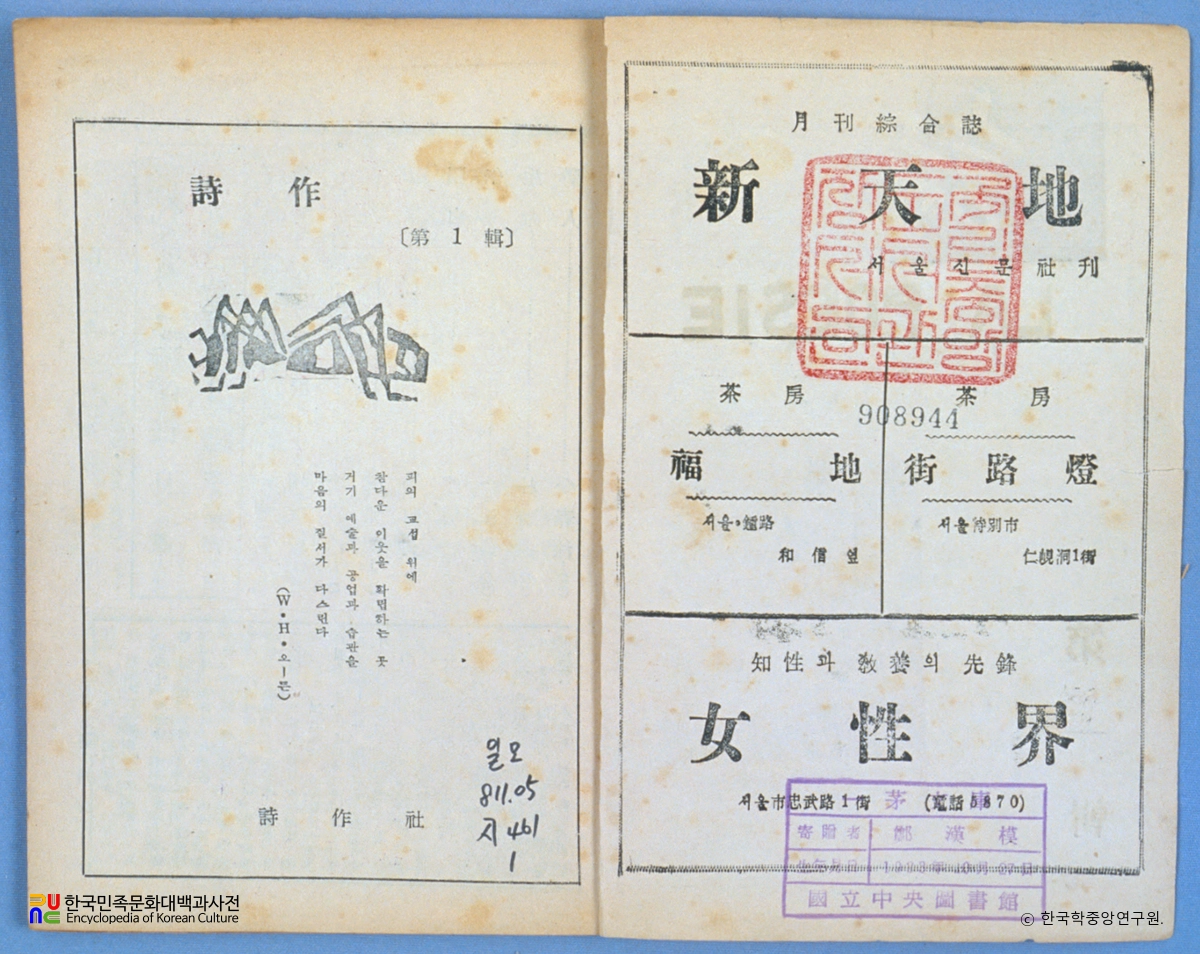 詩 作
〔第 1 輯〕
피의 교섭 위에
참다운 이웃을 확립하는 곳
거기 예술과 공업과 습관을
마음의 질서가 다스린다
(W·H·오—든)
詩 作 社
일모
811.05
시461
1
月刊綜合誌
新天地
서울신문社刊
茶房
福地
서울·鍾路
和信옆
茶房
街路燈
서울特別市
仁峴洞1街
908944
知性과 敎養의 先鋒
女性界
서울市忠武路1街 (電話5870)
寄贈者 鄭漢模
國立中央圖書館
한국민족문화대백과사전
Encyclopedia of Korean Culture
ⓒ 한국학중앙연구원.